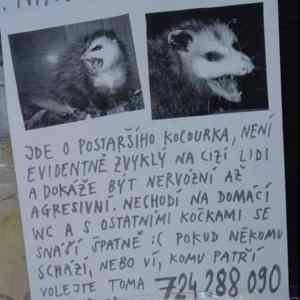 JDE O POSTARŠÍHO KOCOURKA, NENÍ
EVIDENTNĚ ZVYKLÝ NA CIZÍ LIDI
A DOKÁŽE BÝT NERVÓZNÍ AŽ
AGRESIVNÍ. NECHODÍ NA DOMÁCÍ
WC A S OSTATNÍMI KOČKAMI SE
SNÁŠÍ ŠPATNĚ :( POKUD NĚKOMU
SCHÁZÍ, NEBO VÍ, KOMU PATŘÍ
VOLEJTE TOMA 724 288 090